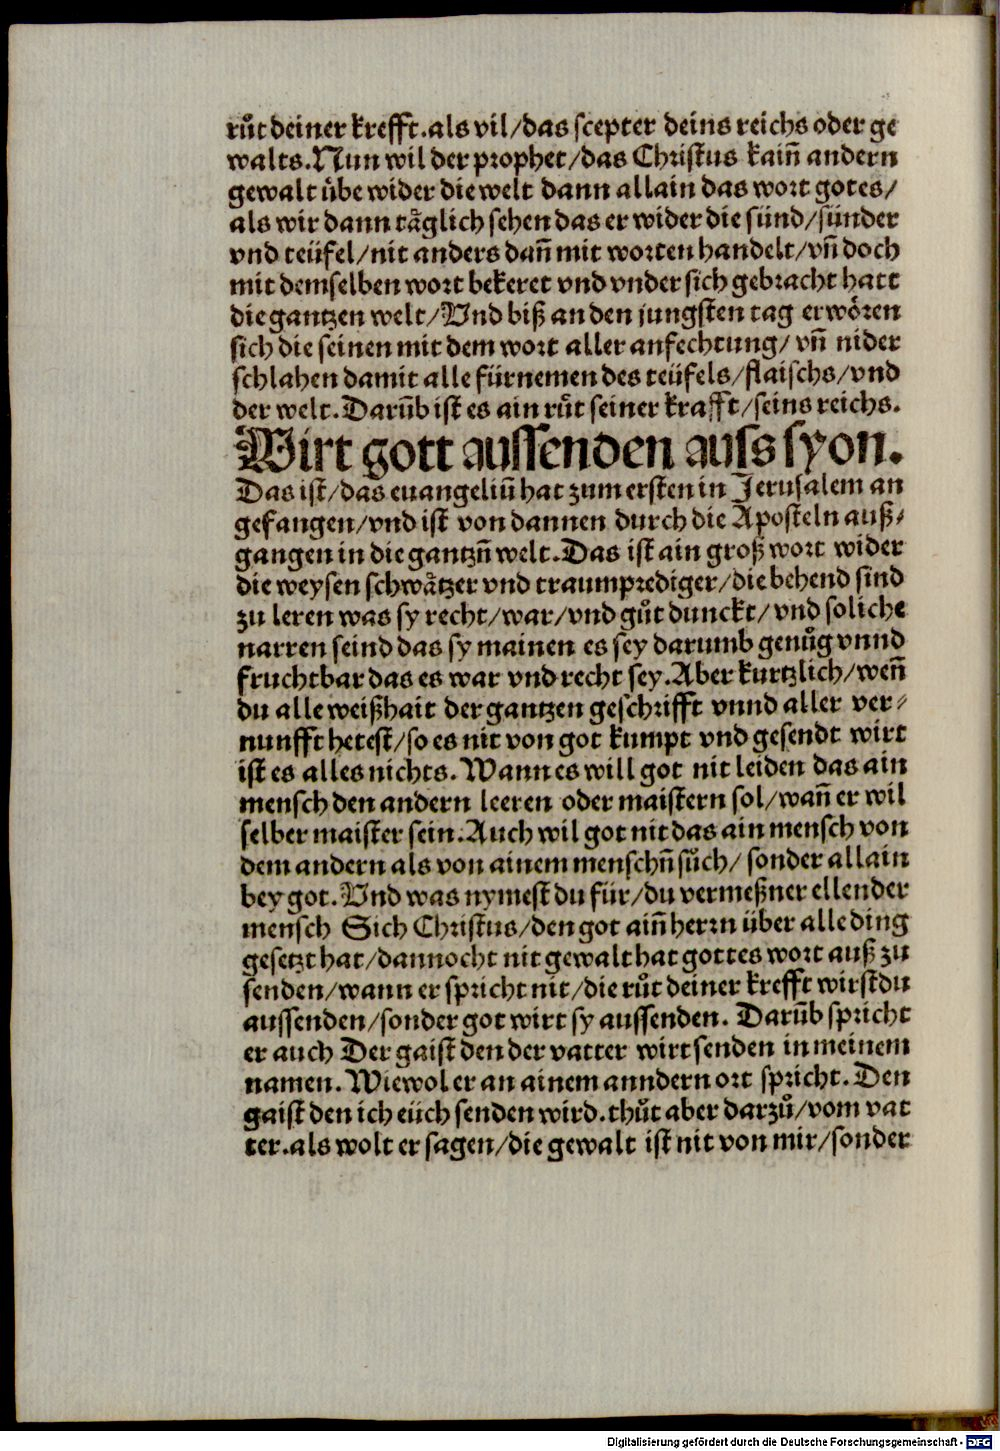 růt deiner krefft.als vil/das scepter deins reichs oder ge
walts.Nun wil der prophet/das Christus kain̄ andern
gewalt ůbe wider die welt dann allain das wort gotes/
als wir dann tåglich sehen das er wider die sünd/sünder
vnd teüfel/nit anders dan̄ mit worten handelt/vn̄ doch
mit demselben wort bekeret vnd vnder sich gebracht hatt
die gantzen welt/Vnd biß an den jungsten tag erwören
sich die seinen mit dem wort aller anfechtung/vn̄ nider
schlahen damit alle fürnemen des teüfels/flaischs/vnd
der welt.Darūb ist es ain růt seiner krafft/seins reichs.
Wirt gott aussenden auss syon.
Das ist/das euangeliū hat zum ersten in Jerusalem an
gefangen/vnd ist von dannen durch die Aposteln auß⸗
gangen in die gantzn̄ welt.Das ist ain groß wort wider
die weysen schwåtzer vnd traumprediger/die behend sind
zu leren was sy recht/war/vnd gůt dunckt/vnd soliche
narren seind das sy mainen es sey darumb genůg vnnd
fruchtbar das es war vnd recht sey.Aber kurtzlich/wen̄
du alle weißhait der gantzen geschrifft vnnd aller ver⸗
nunfft hetest/so es nit von got kumpt vnd gesendt wirt
ist es alles nichts.Wann es will got nit leiden das ain
mensch den andern leeren oder maistern sol/wan̄ er wil
selber maister sein.Auch wil got nit das ain mensch von
dem andern als von ainem menschn̄ sůch/sonder allain
bey got.Vnd was nymest du für/du vermeßner ellender
mensch Sich Christus/den got ain̄ herrn über alle ding
gesetzt hat/dannocht nit gewalt hat gottes wort auß zu
senden/wann er spricht nit/die růt deiner krefft wirst du
aussenden/sonder got wirt sy aussenden. Darūb spricht
er auch Der gaist den der vatter wirt senden in meinem
namen.Wiewol er an ainem anndern ort spricht.Den
gaist den ich eüch senden wird.thůt aber darzů/vom vat
ter.als wolt er sagen/die gewalt ist nit von mir/sonder
Digitalisierung gefördert durch die Deutsche Forschungsgemeinschaft - DFG